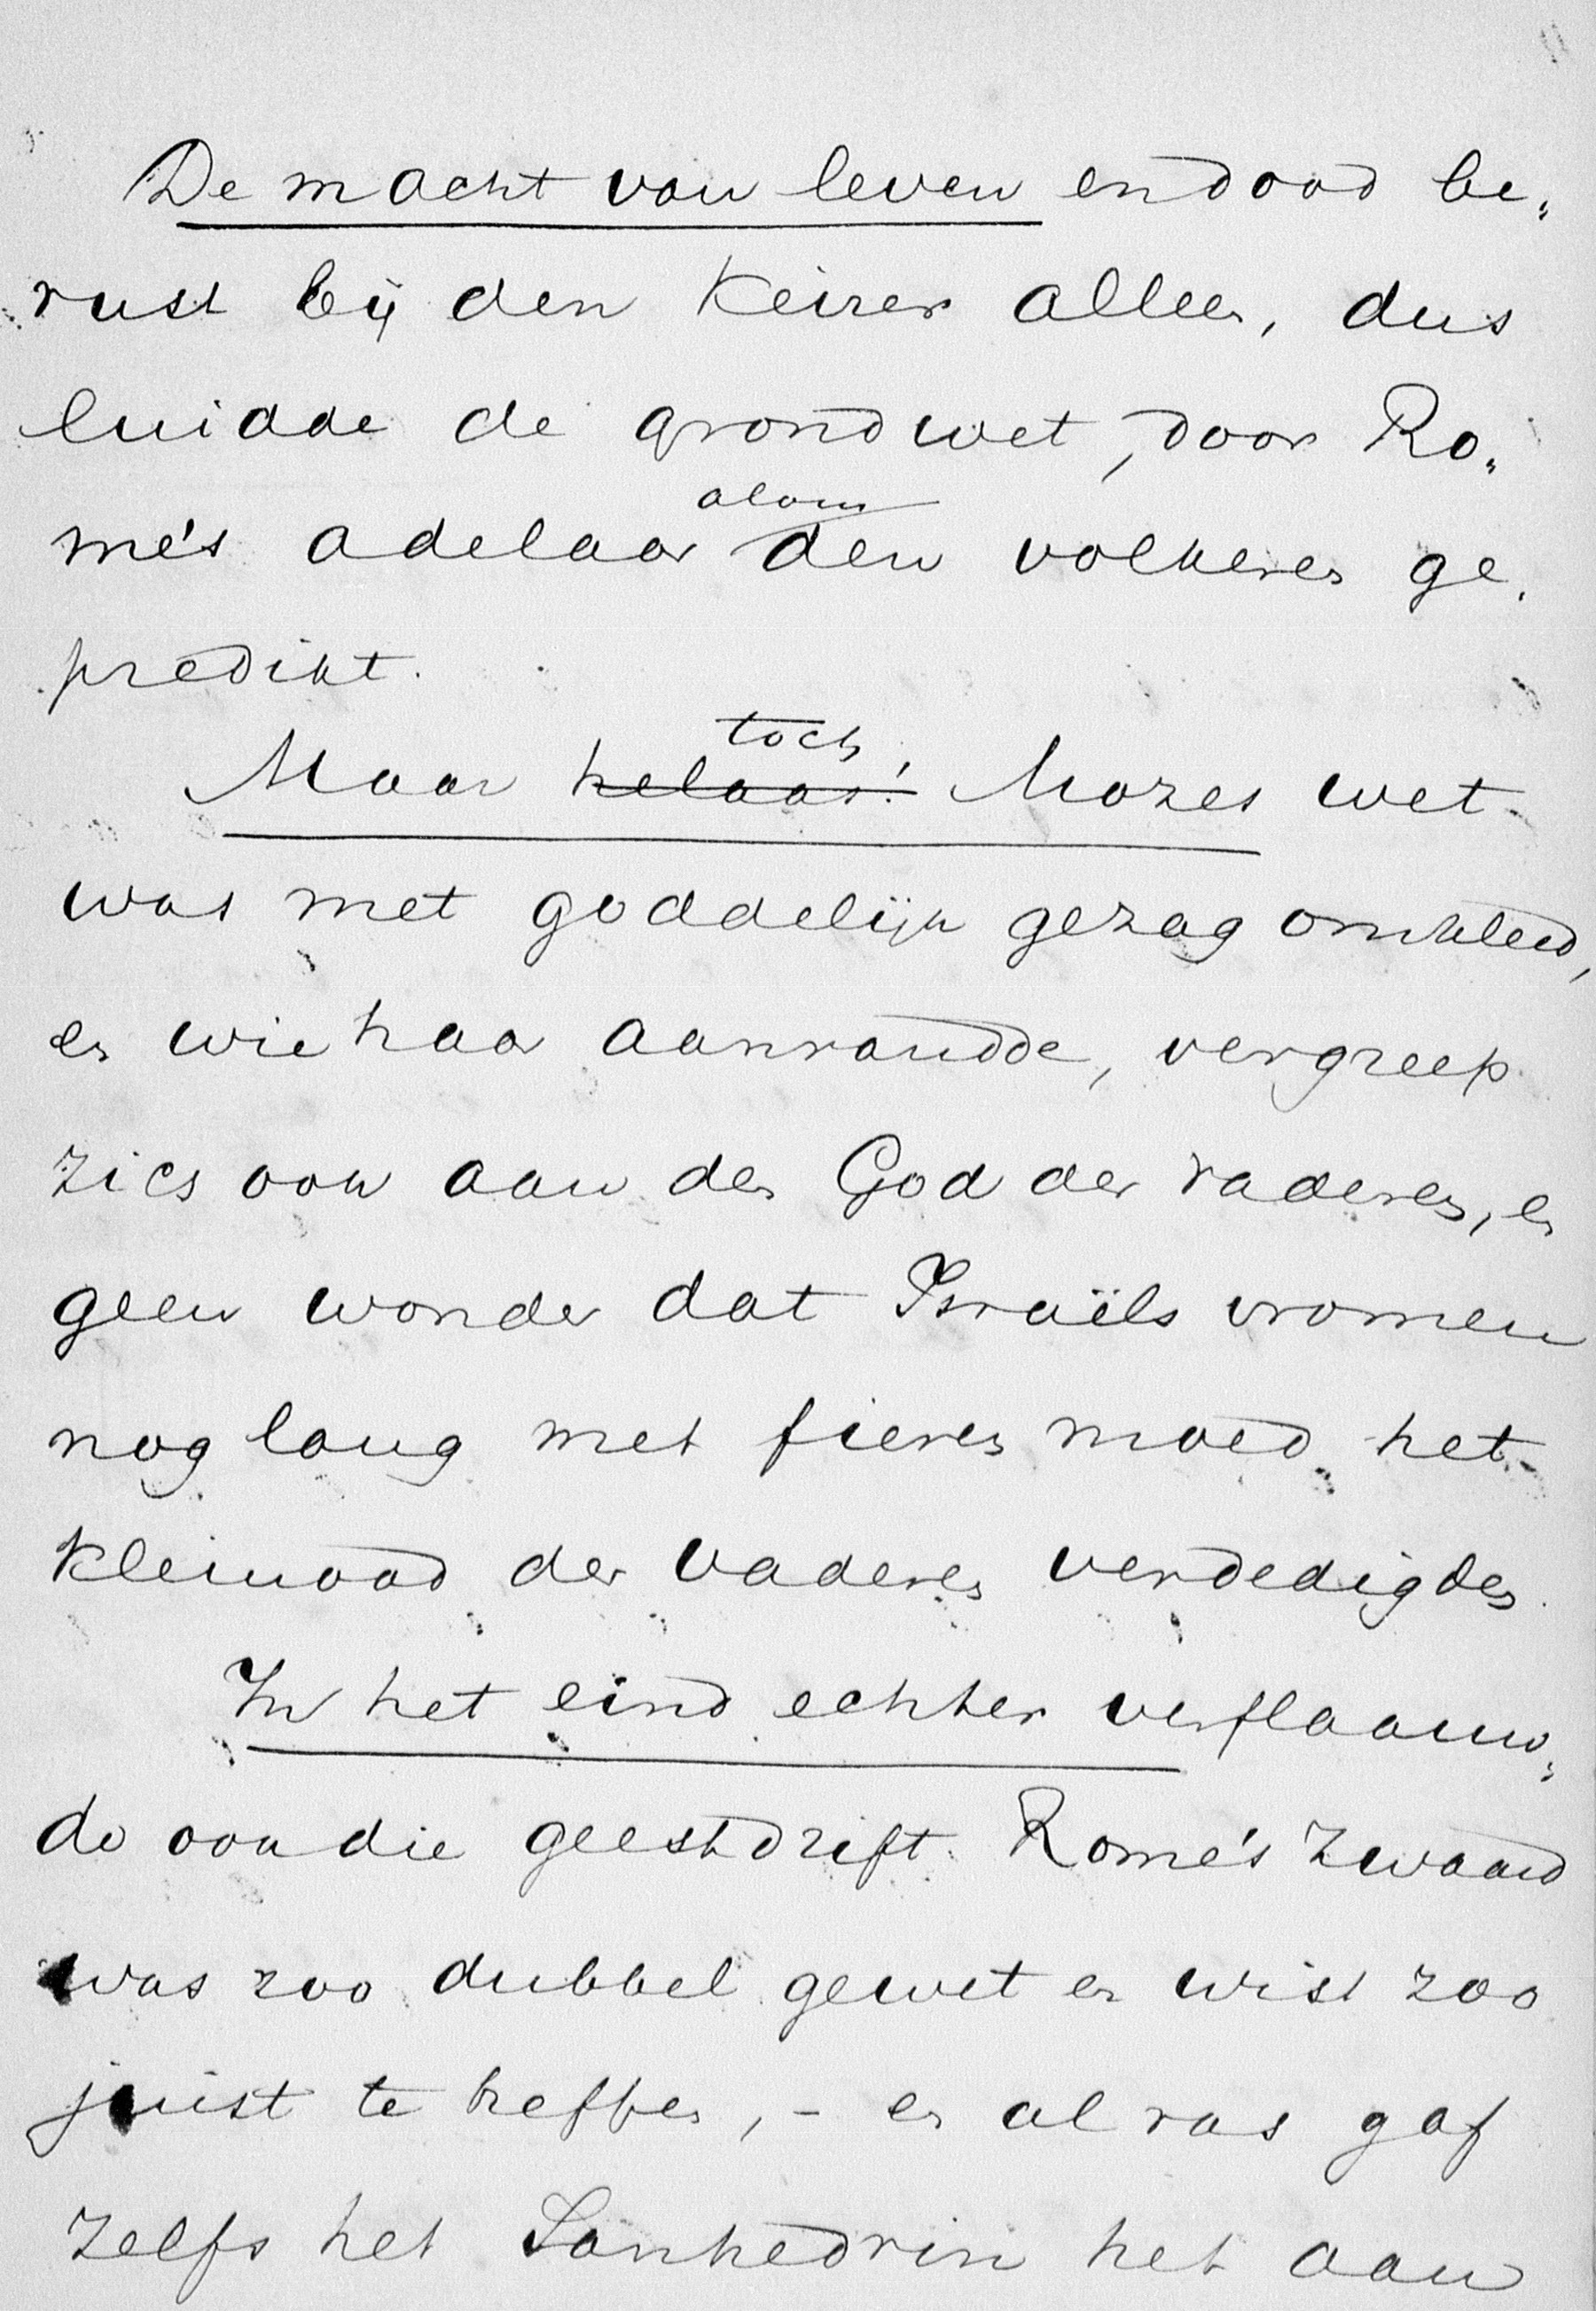 De macht van leven en dood be„
rust bij den Keizer alleen, dus
luidde de grondwet, door Ro„
me's adelaar alom den volkeren ge„
predikt.
Maar helaas! toch, Mozes wet
was met goddelijk gezag omkleed,
en wie haar aanrandde, vergreep
zich ook aan den God der vaderen, en
geen wonder dat Israëls vromen
nog lang met fieren moed het
kleinood der vaderen verdedigden.
In het eind echter verflaauw„
de ook die geestdrift. Rome's zwaard
was zoo dubbel gewet en wist zoo
juist te treffen, – en al ras gaf
zelfs het Sanhedrin het aan